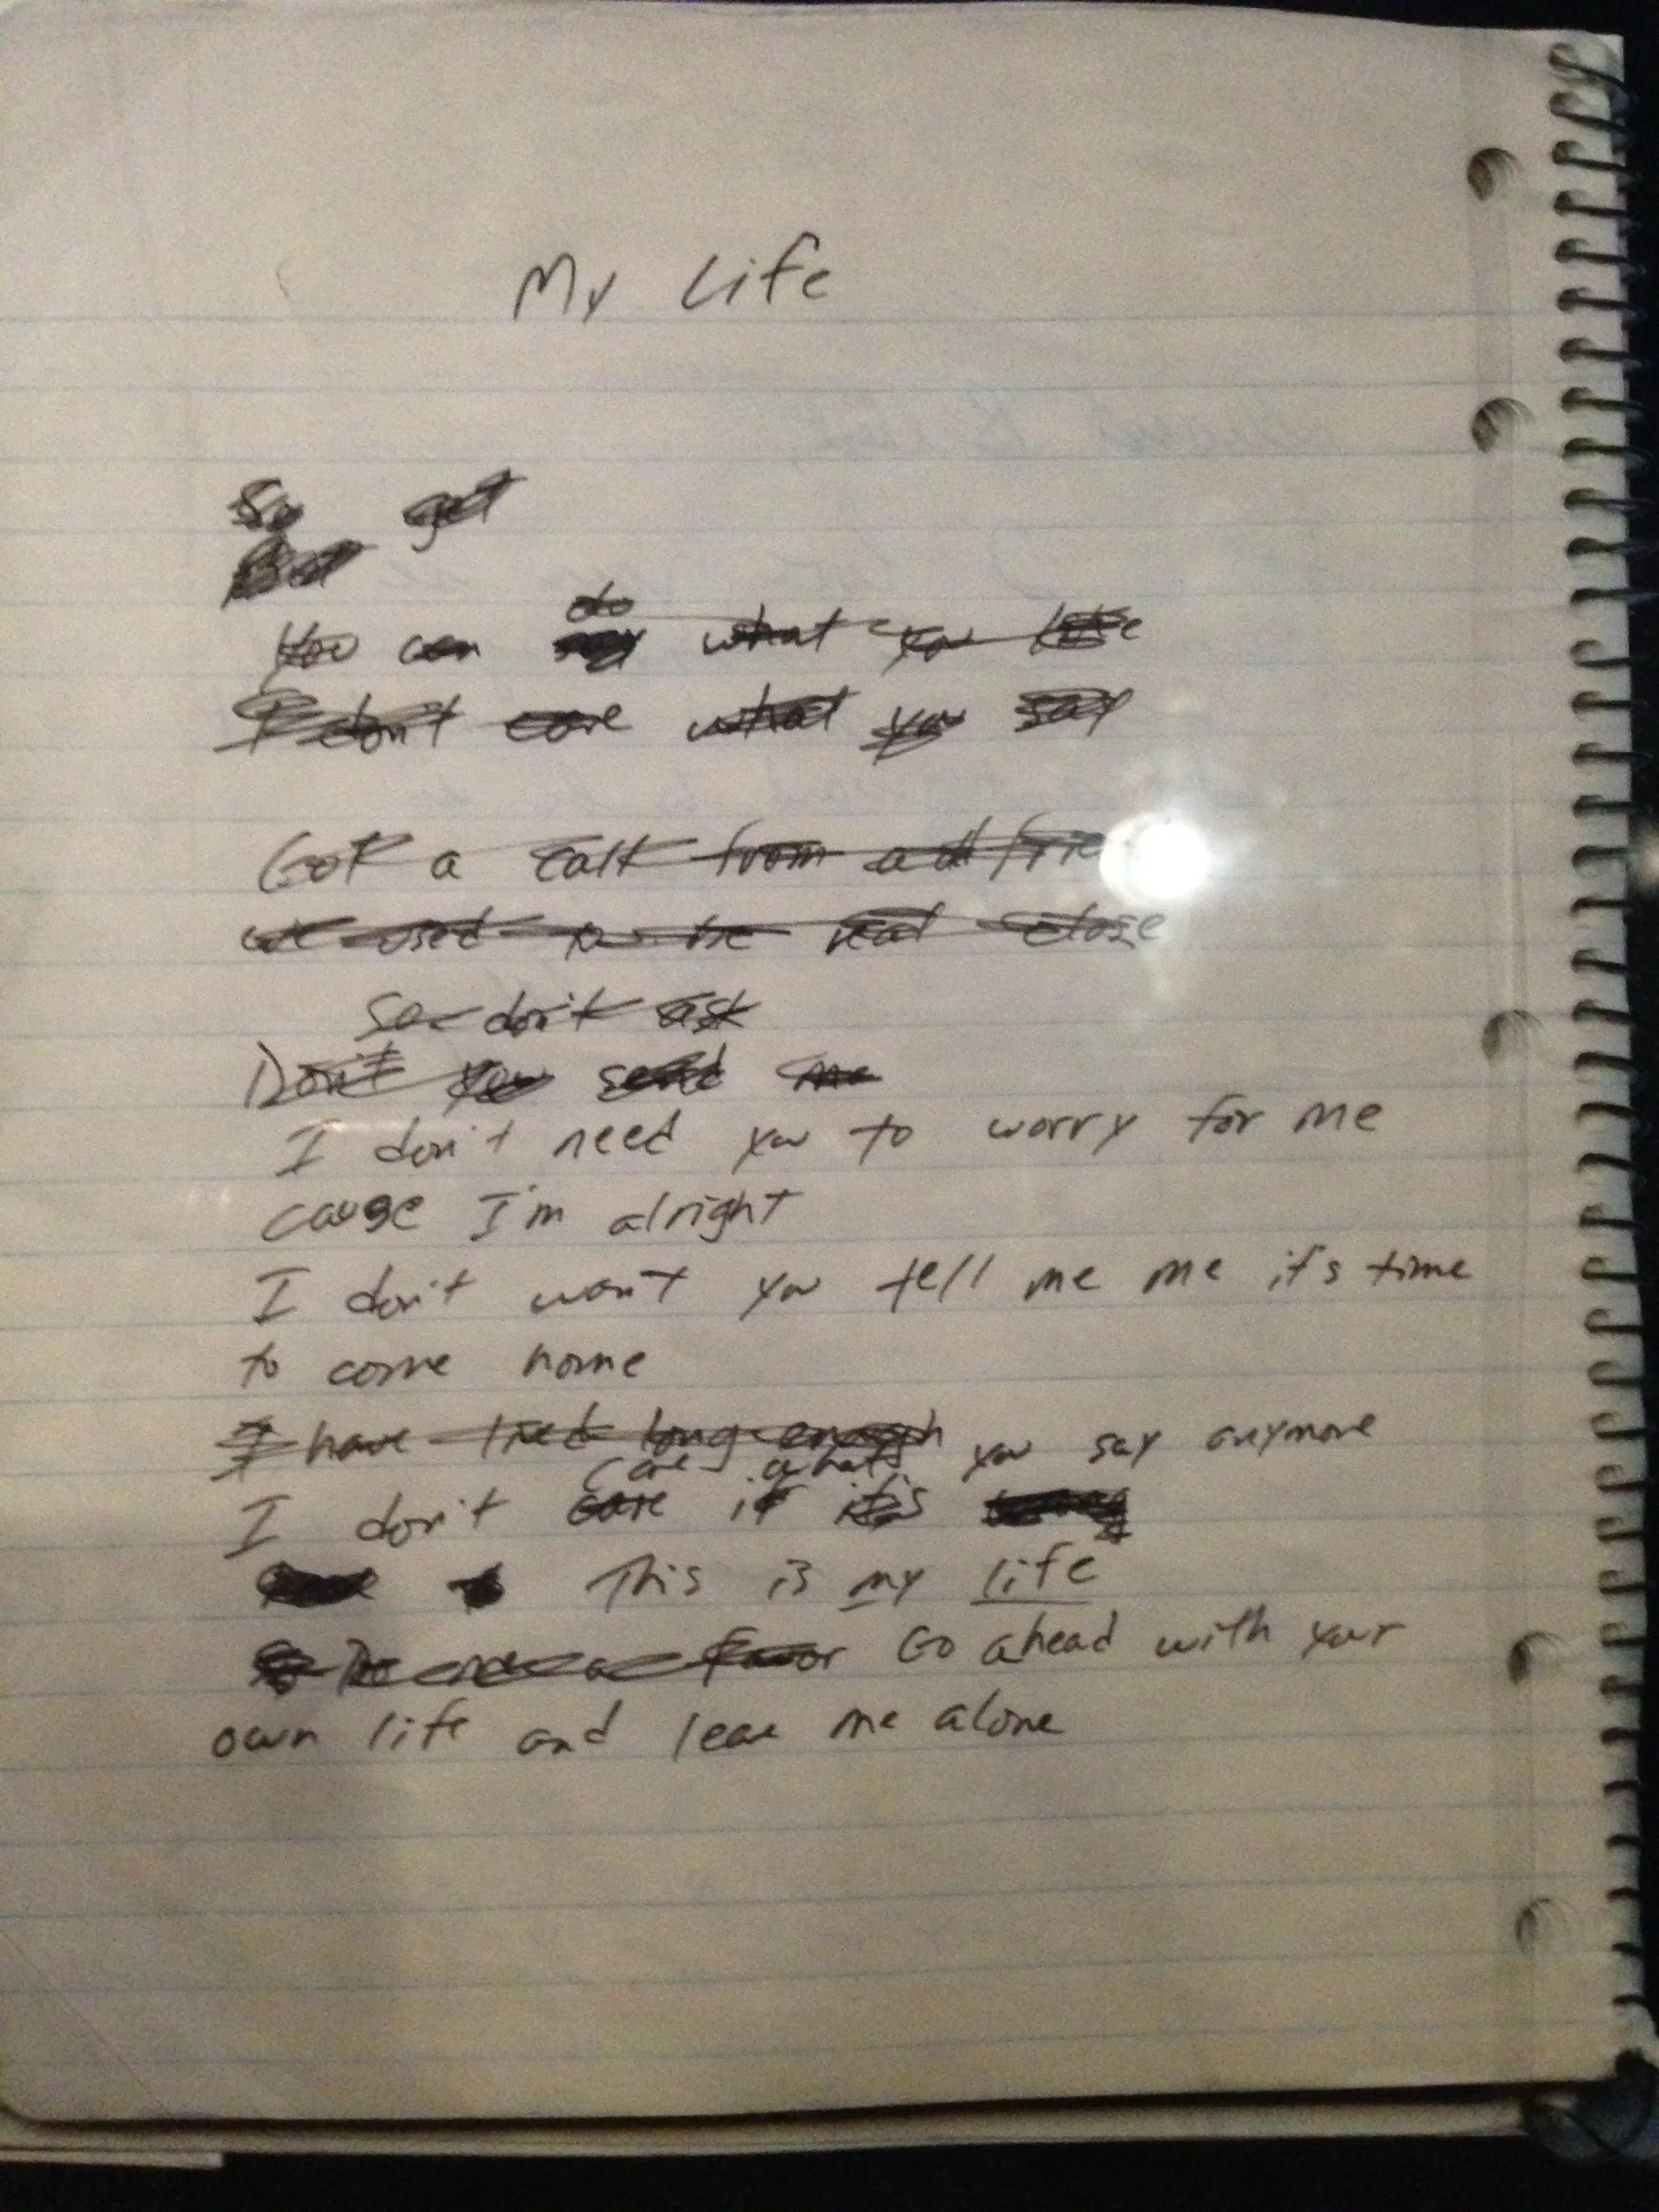 My Life
So get
But
do
You can say what you like
I don't care what you say
Got a call from a frie
we used to be real close
So don't ask
Don't you send me
I don't need you to worry for me
cause I'm alright
I don't want you tell me me it's time
to come home
I have lived long enough
care what you say anymore
I don't care if it's wrong
This is my life
Do me a favor Go ahead with your
own life and leave me alone